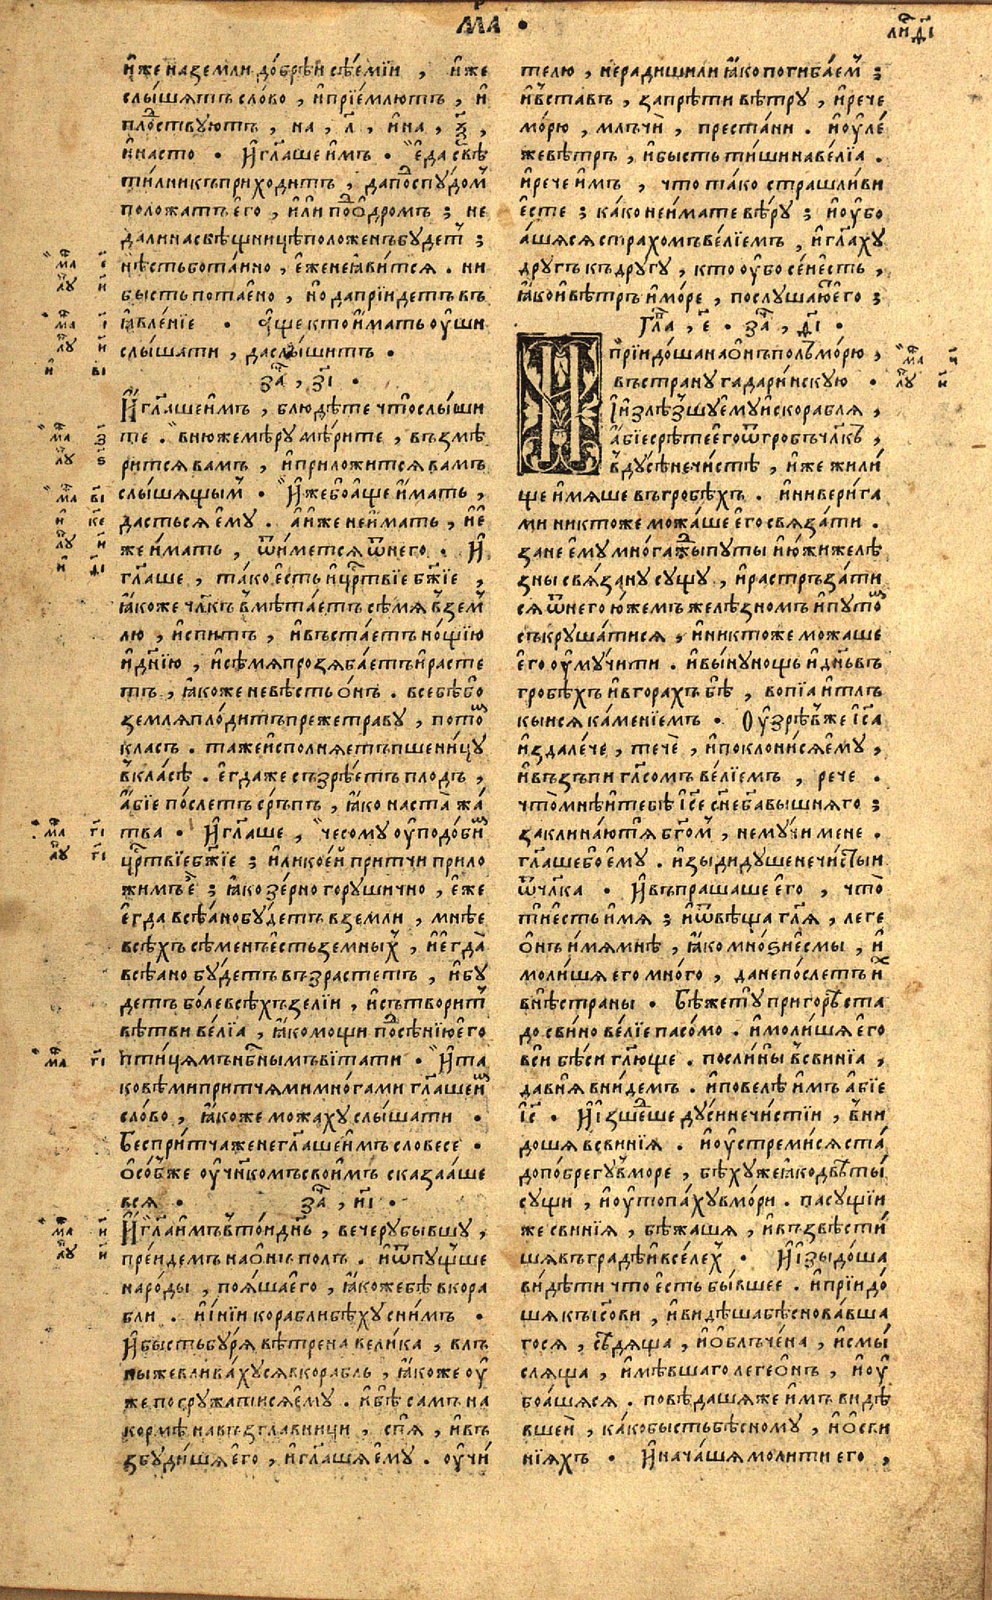 мр҃а •
ли́ д҃і
и҆́же на земли до́брѣи сѣ́емїи , и҆́же
слы́шятъ сло́во , и҆прїе́млютъ , и҆
пло́дствуютъ , на , л҃ , и҆на , ѯ҃ ,
и҆насто • И҆гл҃аше и҆̀мъ • е҆да свѣ
ти́лникъ прихо́дитъ , дапоⷣспу́домъ
положатъ е҆го̀ , и҆́ли поⷣо́дромъ ; не
дали насвѣщницѣ положенъ бу́детъ ;
нѣ́стьбо та́нно , е҆́же неꙗ҆ви́тся . ни
бысть потае́но , но̀ да прїи́детъ въ
ꙗ҆вле́нїе • А҆́ще кто и҆́мать о҆у҆́ши
слы́шати , даслы́шитъ •
зⷱ҇а , з҃і •
И҆гл҃аше и҆̀мъ , блюдѣ́те что слы́ши
те . внюже мѣ́ру мѣ́рите , възмѣ́
рится вамъ , и҆приложи́тся вамъ
слы́шящымъ • И҆́же бо а҆́ще и҆́мать ,
да́сться е҆му̀ . а҆ и҆́же неи҆́мать , и҆е҆́
же и҆́мать , ѿи҆́мется ѿнего̀ . И҆
гл҃аше , та́ко е҆́сть црⷭ҇твїе бж҃їе ,
ꙗ҆́коже чл҃къ вмѣта́етъ сѣ́мя вземъ
лю , и҆спи́тъ , и҆въста́етъ но́щїю
и҆дн҃їю , и҆сѣ́мя прозяба́етъ и҆расте
тъ , ꙗ҆́коже невѣ́сть о҆́нъ . всебѣ́бо
земля̀ плоди́тъ преже траву , пото́мъ
класъ . таже и҆сполня́етъ пшени́цу
вкла́сѣ . е҆гда́же съзрѣ́етъ плодъ ,
а҆́бїе по́слетъ се́рпъ , ꙗ҆́ко наста̀ жа́
тва • И҆гл҃аше , чесому о҆у҆подо́бимъ
црⷭ҇твїе бж҃їе ; и҆ли кое́й при́тчи прило
жимъ е҆̀ ; ꙗ҆́ко зе́рно гору́шично , е҆́же
е҆гда всѣ́яно бу́детъ вземли , мнѣе
всѣ́хъ сѣ́менъ е҆́сть земны́хъ , и҆е҆гда̀
всѣ́яно бу́детъ възрастетъ , и҆бу́
детъ бо́ле всѣ́хъ зе́лїи , и҆сътвори́тъ
вѣ́тви ве́лїа , ꙗ҆́ко мощи поⷣсѣ́нїю е҆го
пти́цямъ нбⷭ҇нымъ вїта́ти • И҆та
ковѣ́ми при́тчями мно́гами гл҃аше и҆̀мъ
сло́во , ꙗ҆́коже можаху слы́шати •
Беспри́тча же негл҃аше и҆̀мъ словесе •
О҆со́бь же о҆у҆чн҃комъ свои҆̀мъ сказааше
вся •   зⷱ҇а , и҃і •
И҆гл҃а и҆мъ вто́и дн҃ь , ве́черу бы́вшу ,
пре́идемъ нао҆́нъ полъ . и҆ѿпу́щьше
наро́ды , поя́шя е҆го̀ , ꙗ҆́коже бѣ вкора
бли . и҆и҆ні́и корабли бѣ́ху сни́мъ •
И҆бы́сть бу́ря вѣ́трена вели́ка , влъ
ны же влива́хуся вкорабль , ꙗ҆́коже о҆у҆
же погружа́тися е҆му̀ . и҆бѣ̀ самъ на
кормѣ̀ навъзглавници , спя̀ , и҆въ
збуди́шя е҆го , и҆гл҃ашя е҆му . о҆у҆чи́
телю , неради́шили ꙗ҆ко погиба́емъ ;
и҆въставъ , запрѣти вѣ́тру , и҆рече
мо́рю , млъчѝ , преста́ни . и҆о҆у҆ле́
же вѣ́тръ , и҆бы́сть тишина ве́лїа .
и҆рече и҆́мъ , что та́ко страшли́ви
е҆сте ; ка́ко неи҆́мате вѣ́ры ; и҆о҆у҆бо
а҆́шяся страхомъ ве́лїемъ , и҆гл҃аху
дру́гъ къ дру́гу , кто о҆у҆́бо се́й е҆́сть ,
ꙗ҆́ко и҆вѣ́тръ и҆мо́ре , послу́шаютъ е҆го ;
Гла , е҃ • зⷱ҇а , ѳ҃і •
И҆прїидо́ша нао҆́нъ полъ мо́рю ,
въстрану гадари́нскую •
И҆и҆злѣ́зшу е҆му̀ и҆скорабля ,
а҆́бїе срѣ́те е҆го ѿгро́бъ чл҃къ ,
вду́сѣ нечи́стѣ , и҆́же жили́
ще и҆мяше въгро́бѣхъ . и҆ниверига
ми никтоже можа́ше е҆го связа́ти .
зане е҆му̀ мно́гажды пу́ты и҆ю҆́жи желѣ́
зны свя́зану су́щу , и҆растръза́ти
ся ѿнего ю҆́жемъ желѣ́зномъ и҆пу́томъ
съкруша́тися , и҆никтоже можаше
е҆го о҆у҆му́чити . и҆вы́ну нощь и҆дн҃ь въ
гро́бѣхъ и҆вгорахъ бѣ̀ , вопїа и҆тлъ
кы́ися ка́менїемъ • О҆у҆зрѣ́въ же і҆с҃а
и҆здале́че , течѐ , и҆поклони́ся е҆му ,
и҆възъпи гл҃сомъ ве́лїемъ , рече •
что̀ мнѣ и҆тебѣ̀ і҆с҃е сн҃е ба вы́шняго ;
заклина́ю тя бг҃омъ , нему́чи мене .
гл҃аше бо е҆му . и҆зы́ди ду́ше нечи́стыи
ѿчл҃ка • И҆въпраша́ше е҆го , что̀
ти е҆́сть и҆мя ; и҆ѿвѣща гл҃я , леге
о҆́нъ и҆мя мнѣ̀ , ꙗ҆́ко мно́ѕи е҆смы , и҆
моли́шя его мно́го , да непо́слетъ и҆̀хъ
внѣ̀ страны • Бѣ́же ту̀ пригорѣ̀ ста
до сви́но ве́лїе пасо́мо . и҆моли́шя е҆го
всѝ бѣ́си гл҃юще . послѝ ны̀ всви́нїа ,
давня̀ вни́демъ . и҆повелѣ̀ и҆̀мъ а҆бїе
і҆с҃ • И҆и҆зшеⷣше ду́си нечи́стїи , вни
дошя всви́нїя . и҆о҆у҆стреми́ся ста́
до побре́гу вмо́ре , бѣ́ху же ꙗ҆ко двѣ ты́
сущи , и҆о҆у҆топа́ху вмо́ри . пасущїи
же сви́нїя , бѣжашя , и҆възвѣсти́
шя въградѣ̀ и҆вселехъ • И҆и҆зы́доша
ви́дѣти что̀ е҆́сть бы́вшее . и҆прїидо́
шя къ і҆со́ви , и҆видѣ́ша бѣснова́вша
гося , сѣдя́ща , и҆о҆блъче́на , и҆смы́
сляща , и҆мѣ́вшаго легео҆́нъ , и҆о҆у҆
боа́шяся . повѣ́дашяже и҆́мъ видѣ́
вшеи҆ , ка́ко бы́сть бѣсному , и҆о҆сви
нїяхъ • И҆нача́шя моли́ти е҆го ,